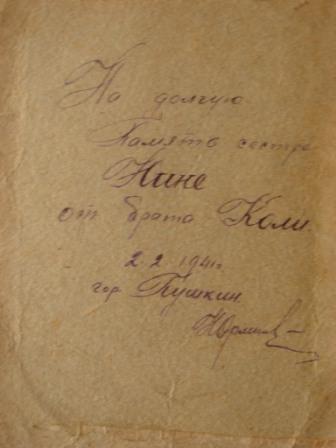 На долгую
Память сестре
Нине
от брата Коли.
2.2 1941г
гор Пушкин.